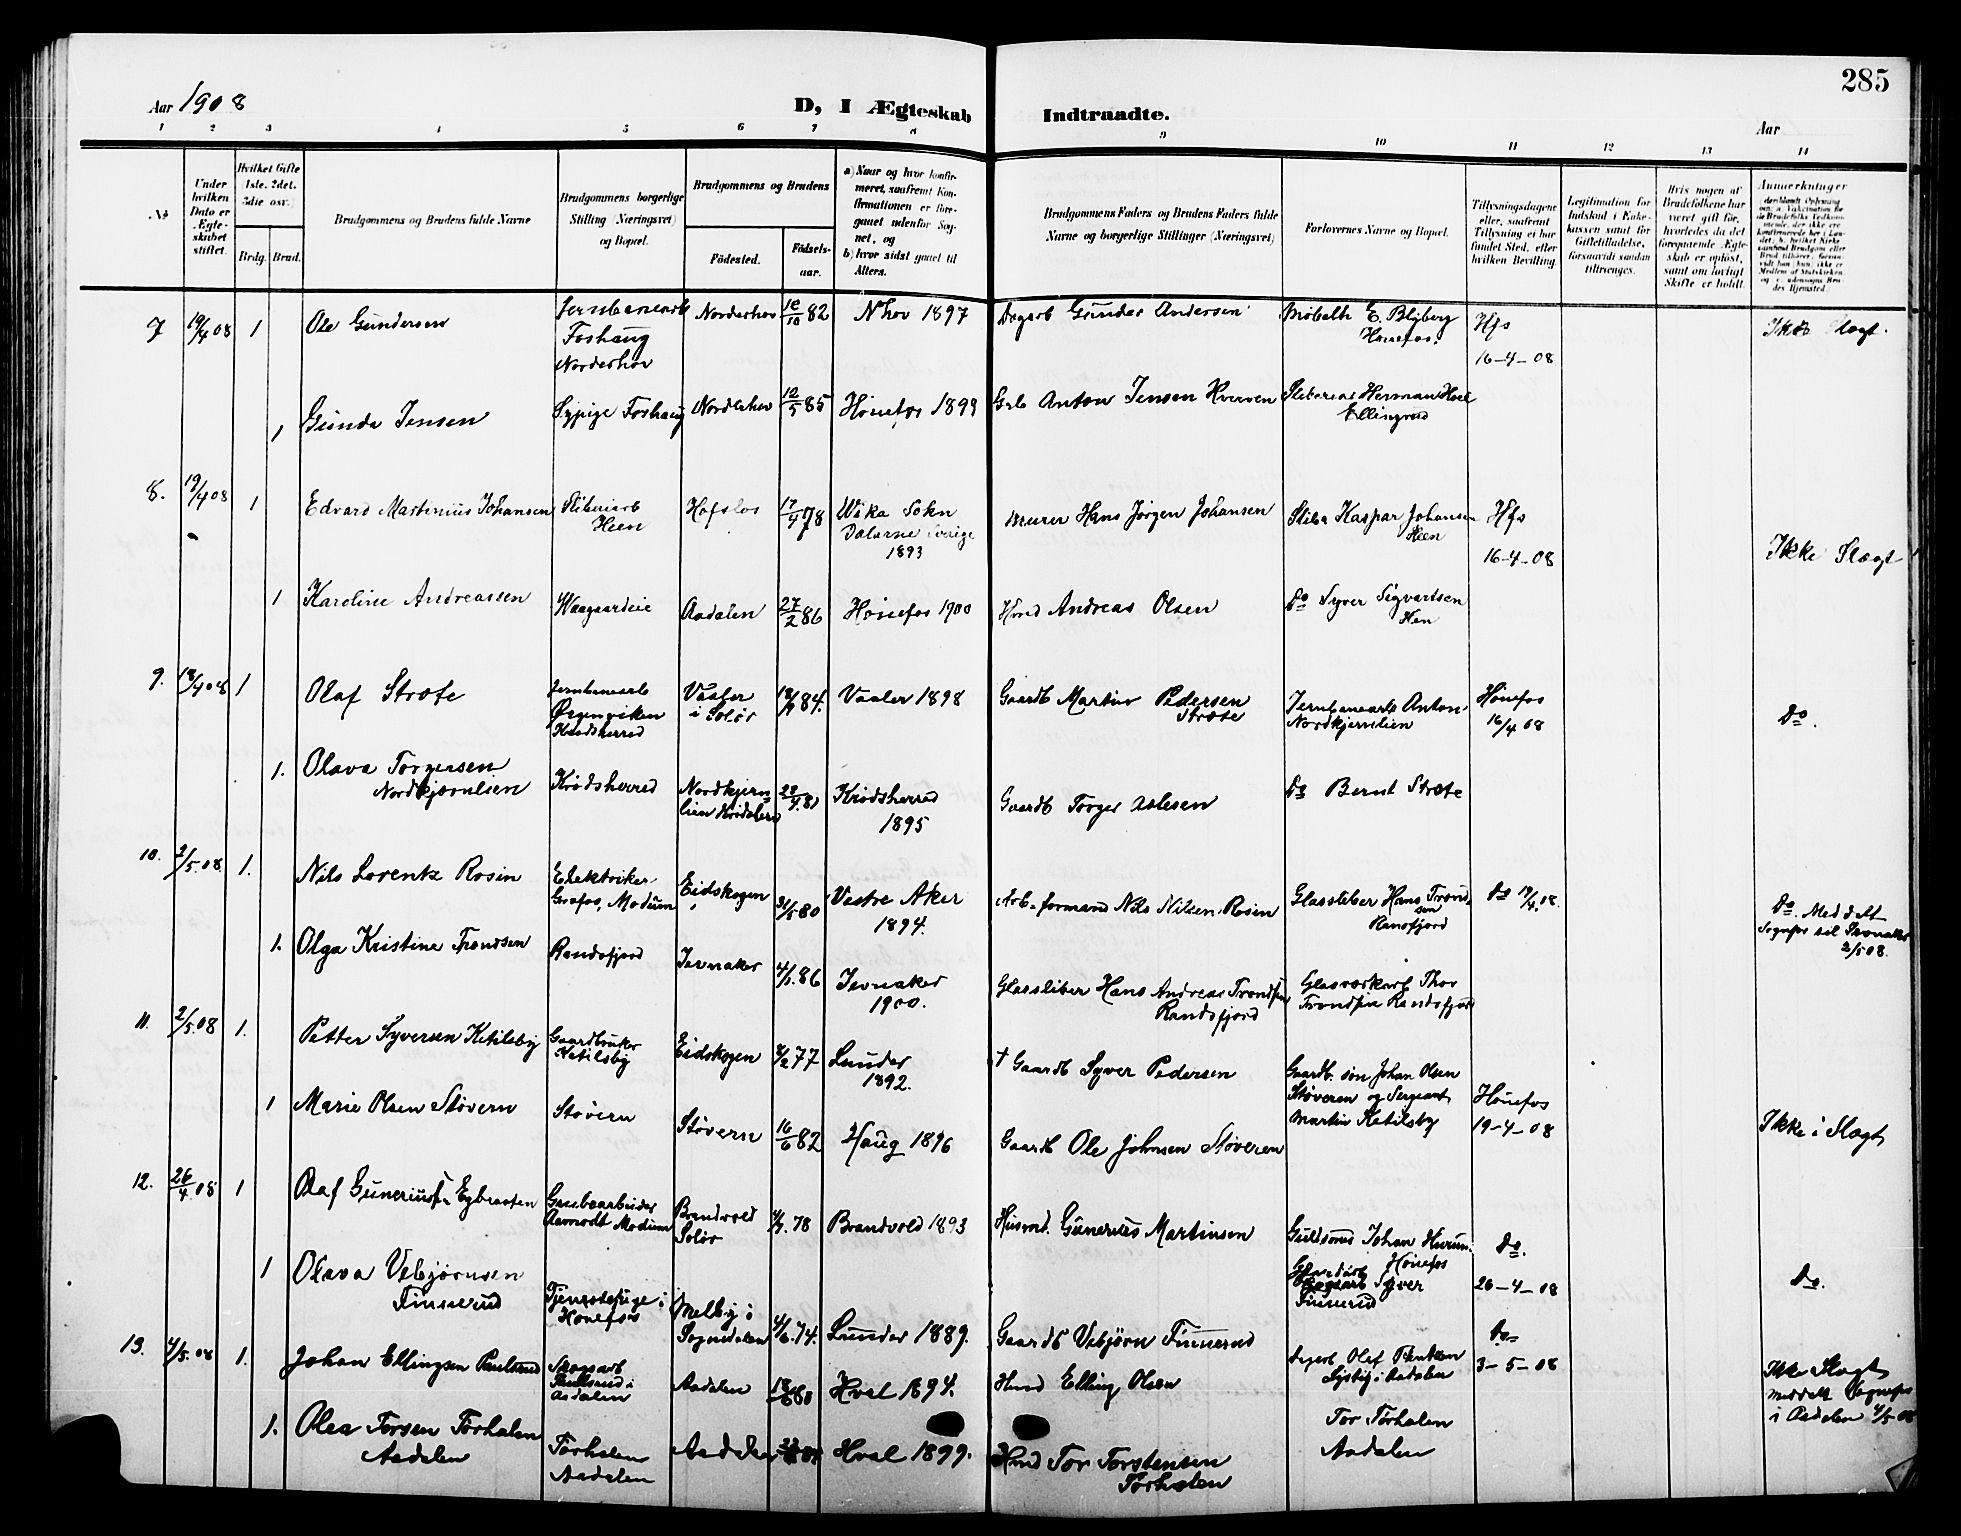 285
Aar 1908
D, I Ægteskab Indtraadte.
Aar
1 2 3 4 5 6 7 8 9 10 11 12 13 14
No
Under hvilken Dato er Ægteskabet stiftet.
Hvilket Gifte 1ste, 2det, 3die osv.)
Brdg. Brud.
Brudgommens og Brudens fulde Navne
Brudgommens borgerlige Stilling (Næringsvei) og Bopæl.
Brudgommens og Brudens
Födested.
Födselsaar.
a) Naar og hvor konfirmeret, saafremt Konfirmationen er foregaaet udenfor Sognet, og
b) hvor sidst gaaet til Alters.
Brudgommens Faders og Brudens Faders fulde Navne og borgerlige Stillinger (Næringsvei)
Forlovernes Navne og Bopæl.
Tillysningsdagene eller, saafremt Tillysning ei har fundet Sted, efter hvilken Bevilling.
Legitimation for Indskud i Enkekassen samt for Giftetilladelse, forsaavidt saadan tiltrænges.
Hvis nogen af Brudefolkene har været gift før, hvorledes da det foregaaende Ægteskab er opløst, samt om lovligt Skifte er holdt.
Anmerkninger
7 19/4 08 1 Ole Gundersen
Jernbanearb Foshaug Norderhov
Norderhov 82 Nhov 1897
Dagarb Gunder Andersen
E. Blyberg Hønefos.
Hfs 16-4-08
Ikke Slægt.
1 Gunda Jensen
Sypige Foshaug
Norderhov 12/5 85 Hønefos 1899
Anton Jensen Hverven
Herman Ellingrud
8. 19/4 08 1 Edvard Martinius Johansen
Sliberiarb Heen
Hofslos 17/4 78
Wika Sokn Dalarne Sverige 1893
Murer Hans Jørgen Johansen
Kaspar Johansen Heen
Hfs 16-4-08
Ikke Slægt
1 Karoline Andreassen
Waagaardeie
Aadalen 27/2 86 Hønefos 1900
Hmd Andreas Olsen
Do Syver Sigvartsen Hen
9. 18/4 08 1 Olaf Stræte
Jernbanearb Ørgenviken Krødsherred
Vaaler i Solør 84. Vaaler 1898
Gaardb Martin Pedersen Stræte
Jernbanearb Anton Nordkjernlien
Hønefos 16/4 08
Do.
1. Olava Torgersen Nordkjernlien
Krødsherred
Nordkjernlien 81 Krødsherred 1895
Gaardb Torger Aslesen
Do Bernt Stræte
10. 2/5.08 1. Nils Lorentz Rosin
Elektriker Gravfos, Modum
Eidskogen 31/5 80 Vestre Aker 1894.
Arb-formand Nils Nilsen Rosin
Glassliber Hans Trondsen Ransfjord
Do 19/4.08.
Do. Medd at Sognepr til Jevnaker 2/5 08.
1. Olga Kristine Trondsen
Randsfjord
Jevnaker 86 Jevnaker 1900.
Glassliber Hans Andreas Trondsen Randsfjord
Glasværkarb Thor Trondsen Randsfjord
11. 2/5.08 1. Petter Syversen Ketilsby
Gaardbruker Ketilsby
Eidskogen 77 Lunder 1892.
† Gaardb Syver Pedersen
Gaardb. søn Johan Olsen Støveren og Sergeant Martin Ketilsby
Hønefos 19-4-08
Ikke i Slægt
1 Marie Olsen Støvern
Støvern
Støvern 16/6 82 Haug 1896
Gaardb Ole Johnsen Støveren
12. 26/4.08 1 Olaf Guneriusen Egbraaten
Grubearbeider Modum
Brandvold Solør 78 Brandvold 1893
Husmd. Gunerius Martinsen
Guldsmed Johan Hurum Hønefos
Do. 26-4-08
Do.
1 Olava Vebjørnsen Finnerud
Tjenestepige i Hønefos
Melby i Sogndalen 74. Lunder 1889.
Gaardb Vebjørn Finnerud
Syver Finnerud
13. 4/5.08 1. Johan Ellingsen Paulsrud
Skogsarb Paulsrud i Aadalen
Aadalen 80 Hval 1894.
Hmd Elling Olsen
Olaf i Aadalen
Do 3-5-08
Ikke Slægt meddelt Sognepr i Aadalen 4/5 08
1. Olea Torsen Tørhalen Aadalen
Tørhalen Aadalen
Aadalen Hval 1899.
Hmd Tor Torstensen Tørhalen
Tor Tørhalen Aadalen